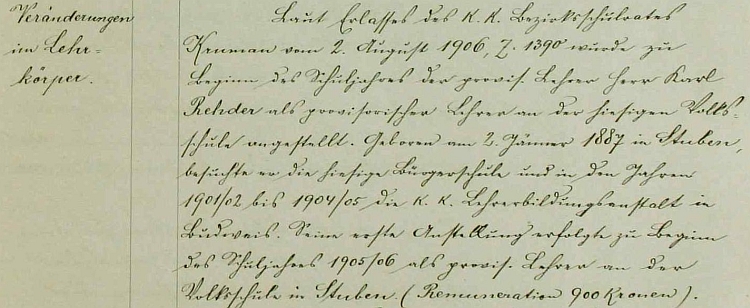 Veränderungen
im Lehr-
körper.
Laut Erlasses des k. k. Bezirksschulrates
Krumau vom 2. August 1906, Z. 1390 wurde zu
Beginn des Schuljahres der provis. Lehrer Herr Karl
Rehder als provisorischer Lehrer an der hiesigen Volks-
schule angestellt. Geboren am 2. Jänner 1887 in Stuben,
besuchte er die hiesige Bürgerschule und in den Jahren
1901/02 bis 1904/05 die k. k. Lehrerbildungsanstalt in
Budweis. Seine erste Anstellung erfolgte zu Beginn
des Schuljahres 1905/06 als provis. Lehrer an der
Volksschule in Stuben. (Remuneration 900 Kronen).